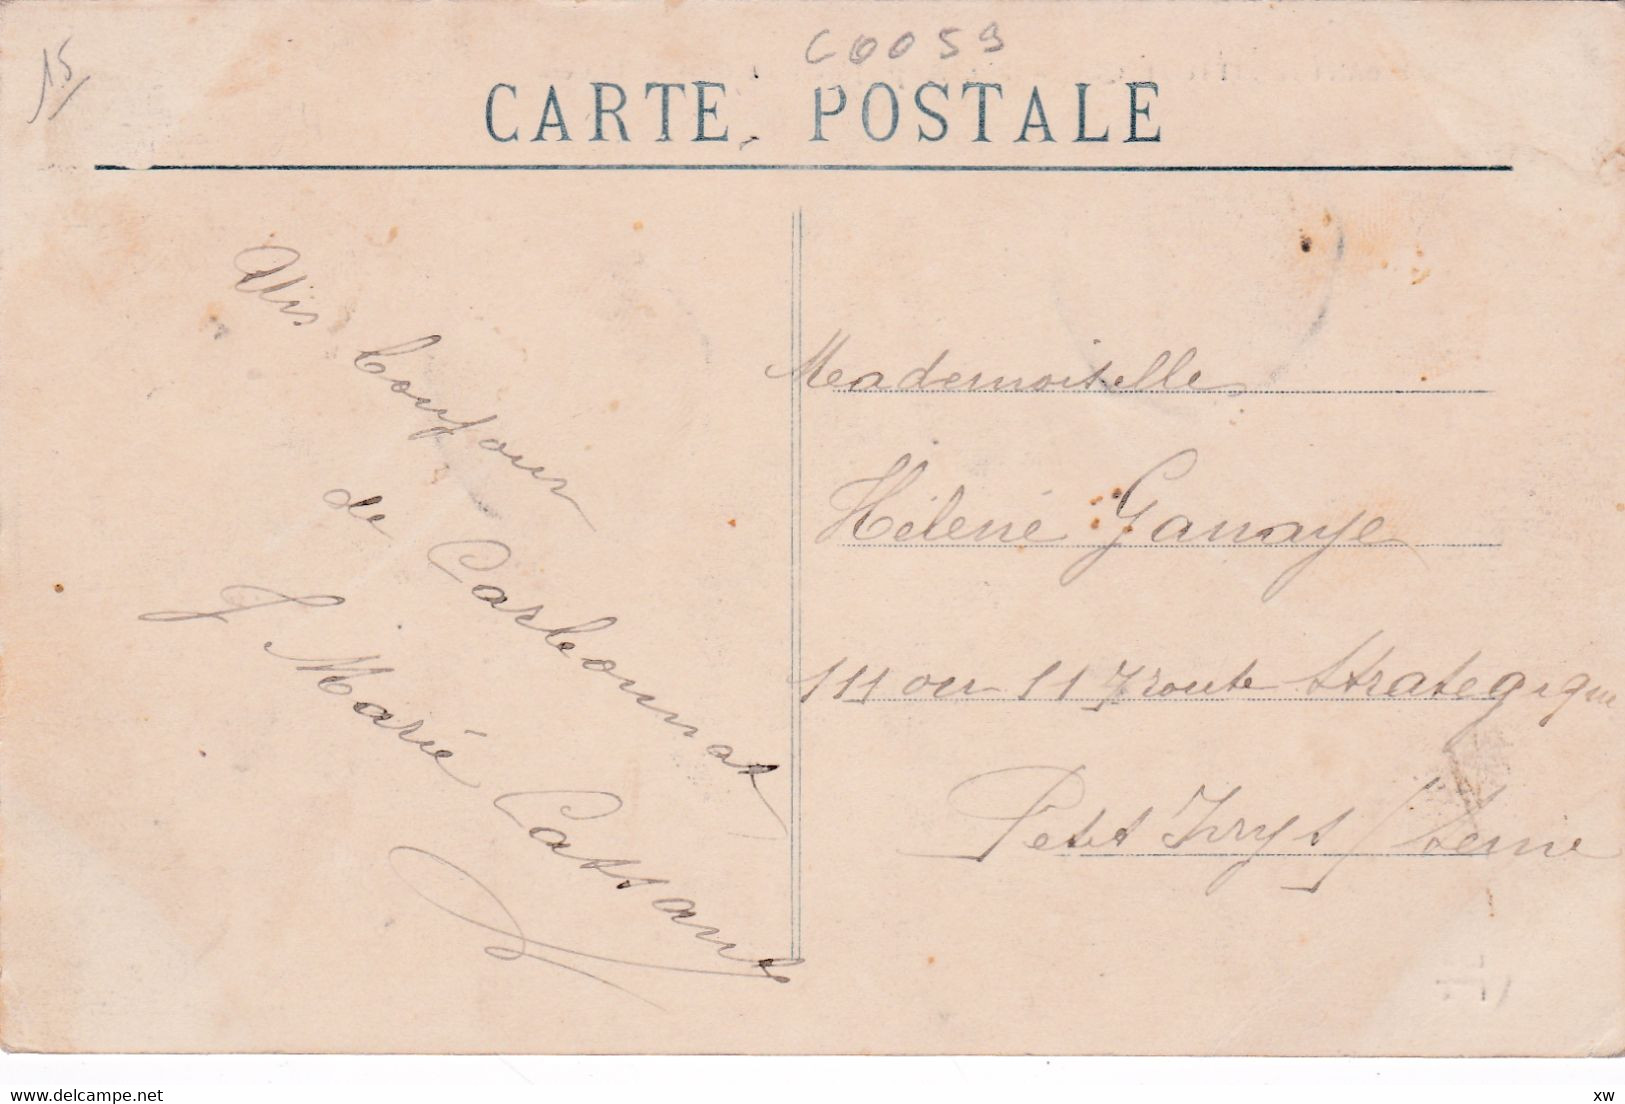 15
C0059
CARTE POSTALE
Un bonjour
de Carbonnat
J Marie Cassans
Mademoiselle
Hélène Ganaye
111 ou 117 route Strategique
Petit Ivry s/ Seine
delcampe.net
xw